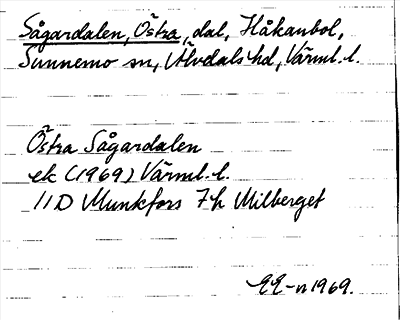 Sågardalen, Östra, dal, Håkanbol,
Sunnemo sn, Älvdals hd, Värml. l.
Östra Sågardalen
ek (1969) Värml. l.
11D Munkfors 7h Milberget
EE-n 1969.